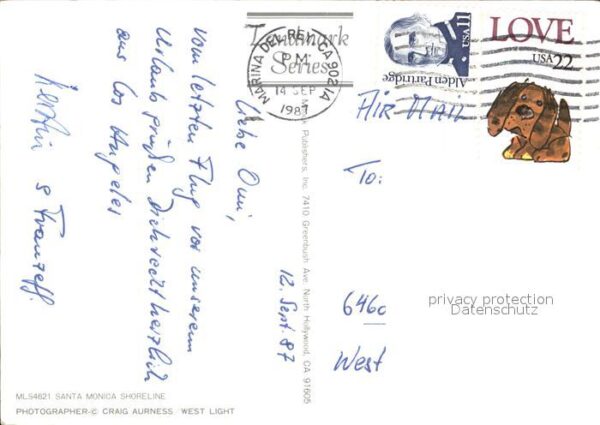 Landmark
Series
MARINA DEL REY, CA 90291A
P.M.
14 SEP
1987
USA 11
Alden Partridge
LOVE
USA 22
AIR MAIL
To:
6460
West
privacy protection
Datenschutz
12. Sept. 87
Liebe Omi,
vom letzten Flug vor unserem
Urlaub grüßen Dich recht herzlich
aus Los Angeles
Publishers, Inc. 7410 Greenbush Ave. North Hollywood, CA 91605
MLS4621 SANTA MONICA SHORELINE
PHOTOGRAPHER-© CRAIG AURNESS/WEST LIGHT